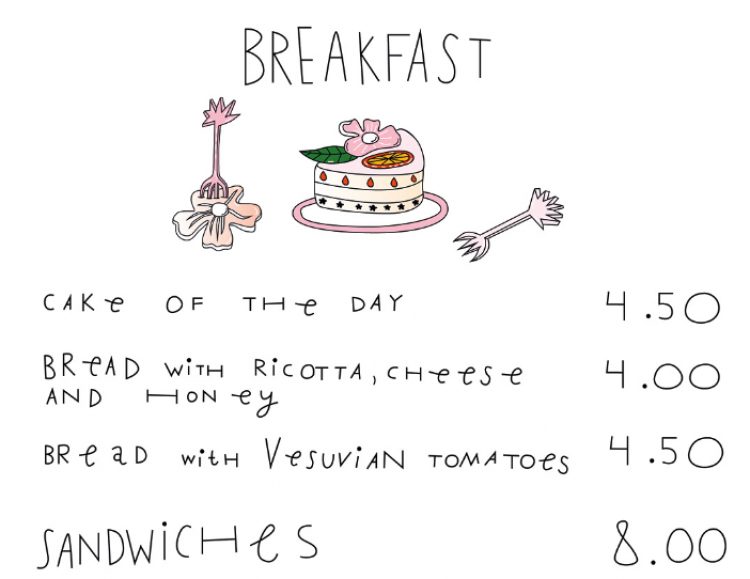 BREAKFAST
CAKe OF THe DAY 4.50
BReAD WiTH RiCOTTA, CHeeSe 4.00
AND HONey
BReaD wiTH VeSUViAN TOMATOeS 4.50
SANDWiCHeS 8.00